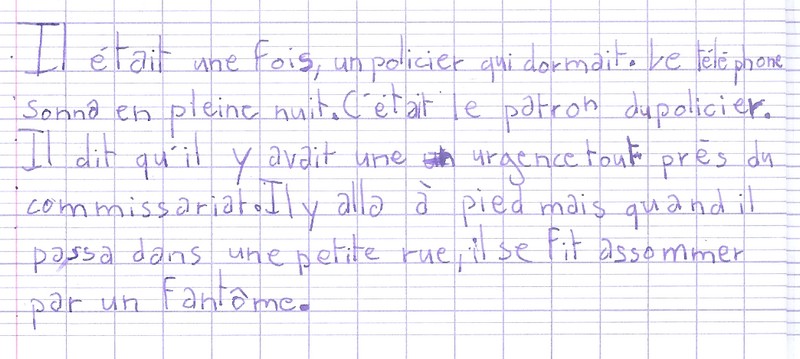 Il était une fois, un policier qui dormait. Le téléphone
sonna en pleine nuit. C'était le patron du policier.
Il dit qu'il y avait une urgence tout près du
commissariat. Il y alla à pied mais quand il
passa dans une petite rue, il se fit assommer
par un fantôme.